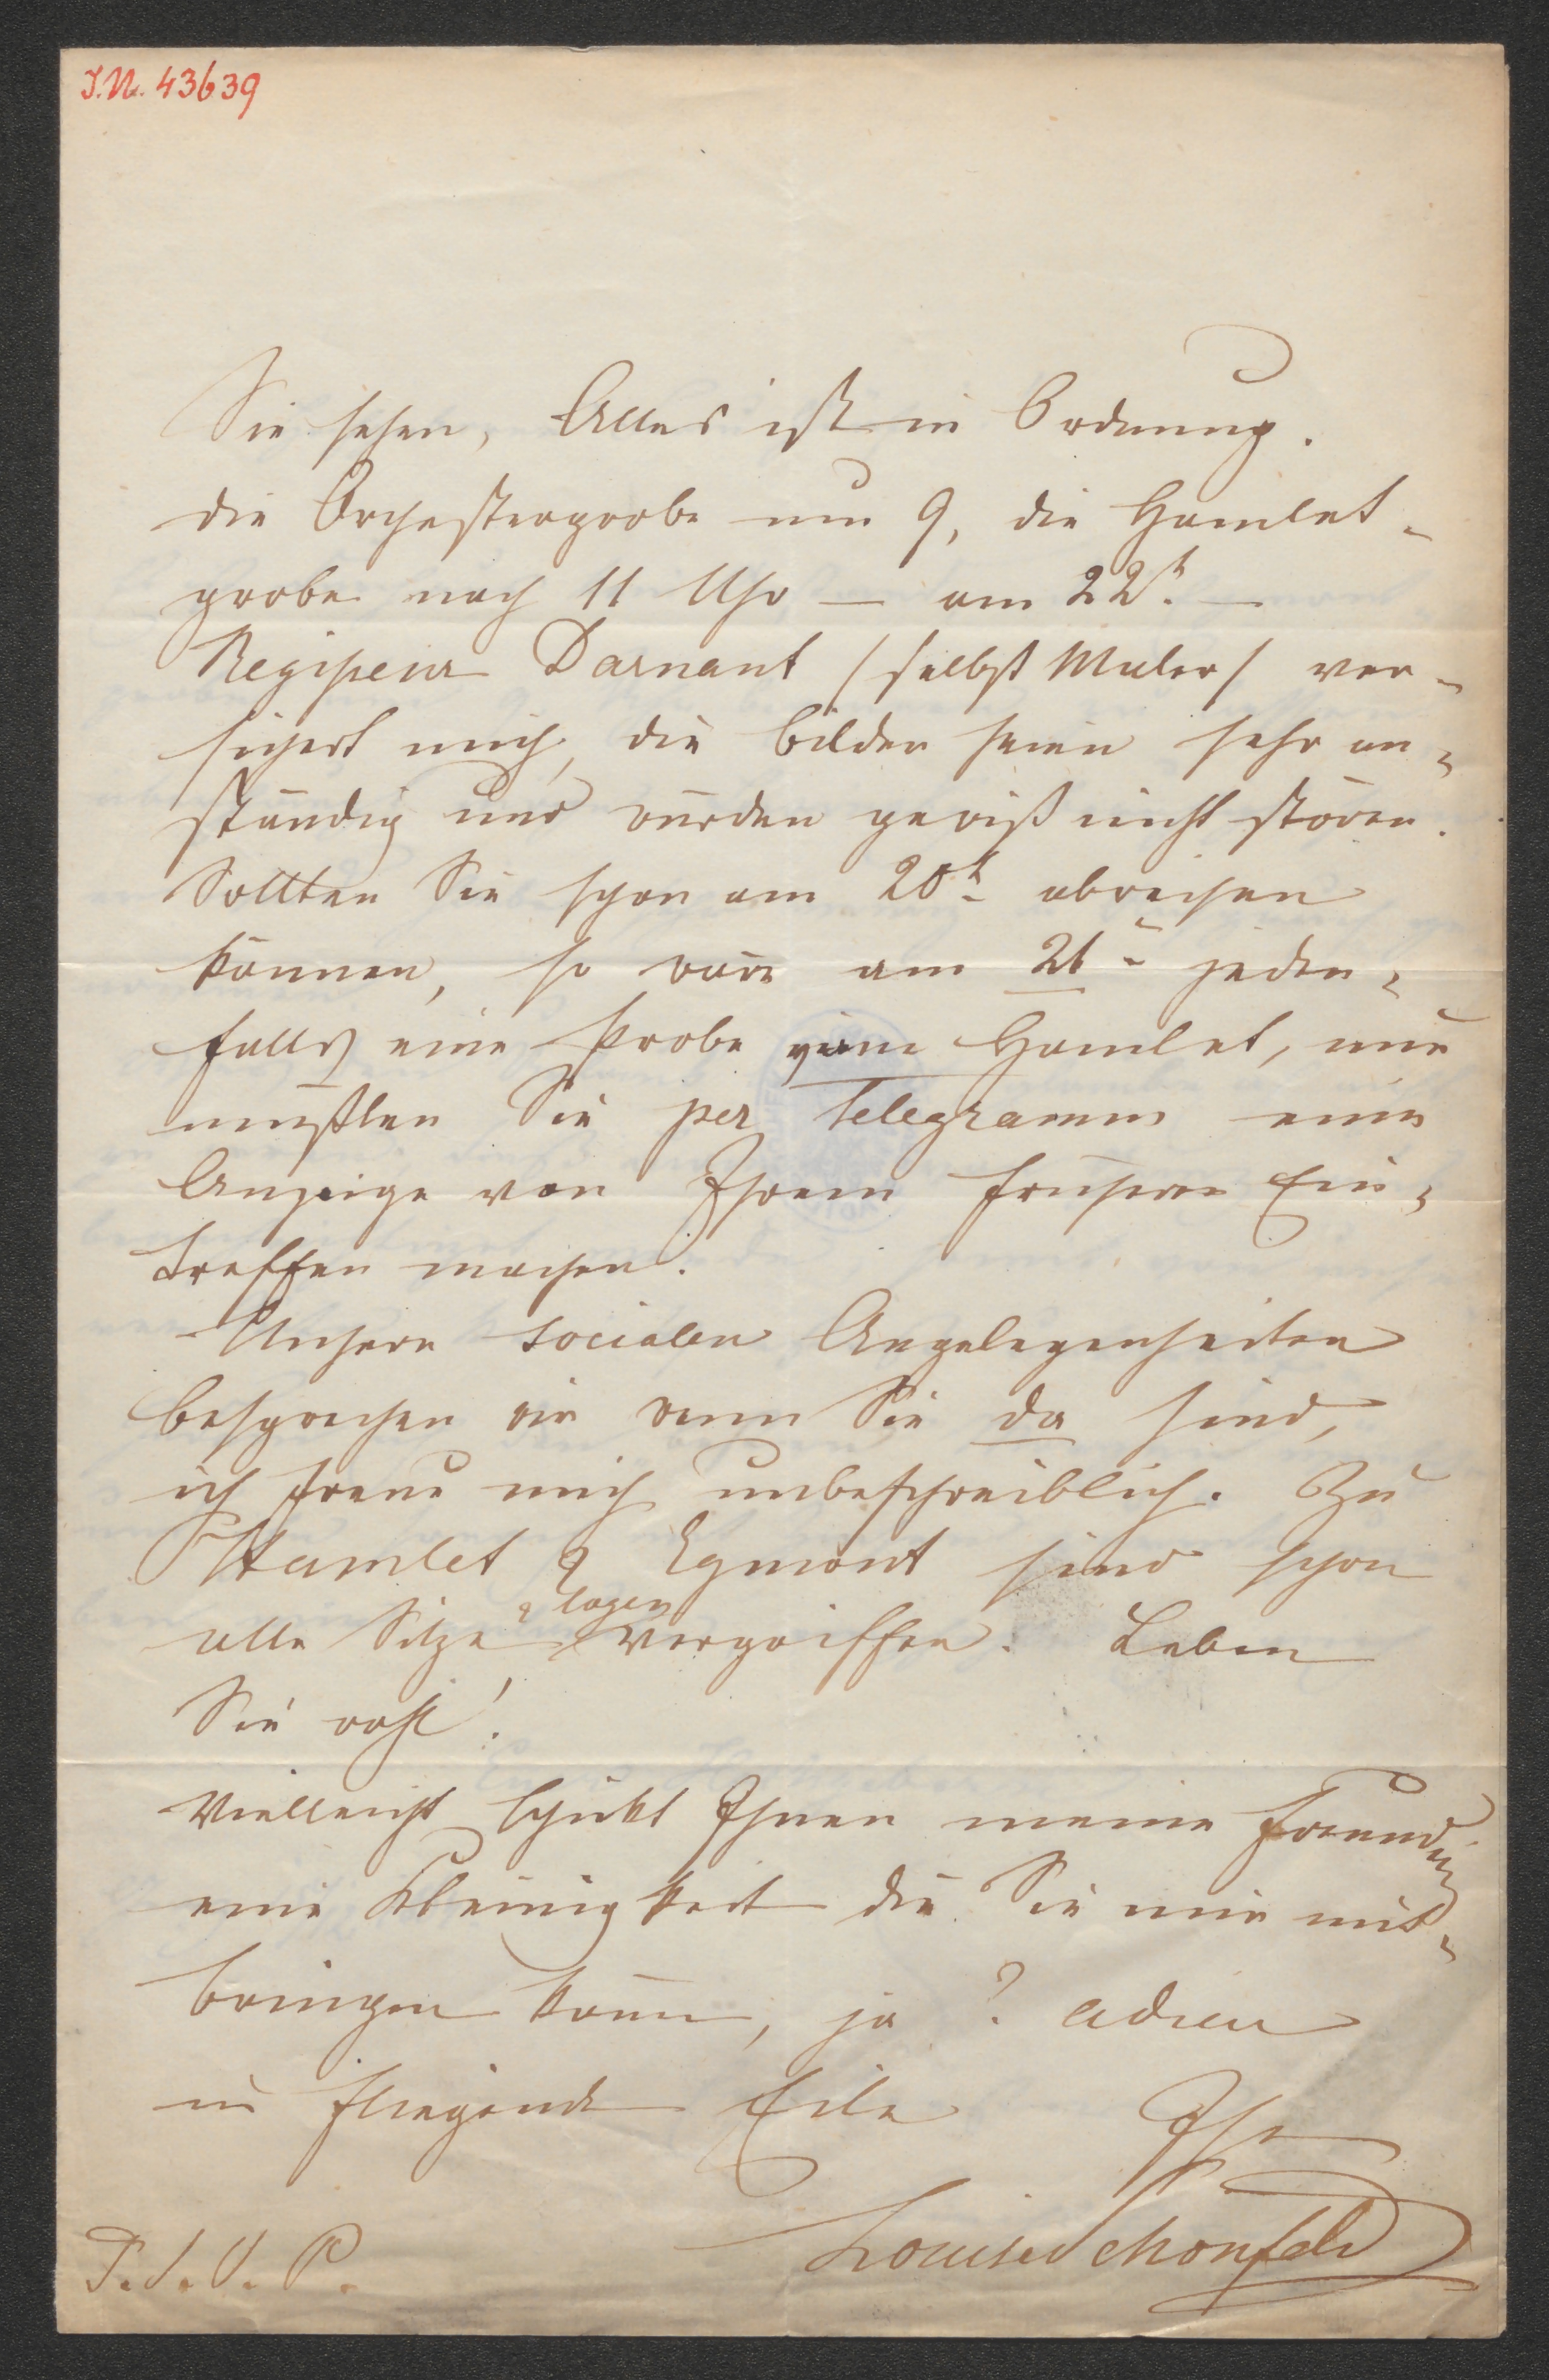 J.N. 43639
Sie sehen, Alles ist in Ordnung.
die Orchesterprobe um 9, die Hamlet-
probe nach 11 Uhr — am 22t. —
Regisseur Darnant /selbst Maler/ ver-
sichert mich, die Bilder seien sehr an-
ständig und würden gewiß nicht stören.
Sollten Sie schon am 20t abreisen
können, so wäre am 21t jeden-
falls eine Probe vom Hamlet, nur
müßten Sie per Telegramm eine
Anzeige von Ihrem früheren Ein-
treffen machen.
Unsere socialen Angelegenheiten
besprechen wir wenn Sie da sind,
ich freue mich unbeschreiblich. Zu
Hamlet & Egmont sind schon
alle Sitze & Logen vergriffen. Leben
Sie wohl!
Vielleicht schickt Ihnen meine Freundin
eine Kleinigkeit die Sie mir mit-
bringen könn, ja? adieu
in fliegender Eile Ihre
Louise Schönfeld
T. S. V. P.